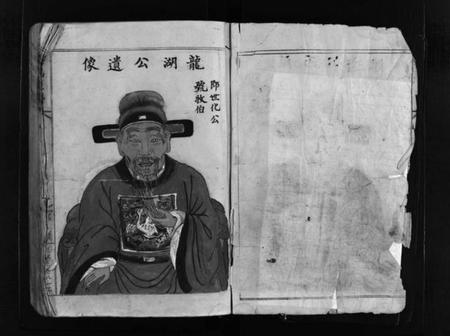 龍湖公遺像
郎世化公
號敬伯